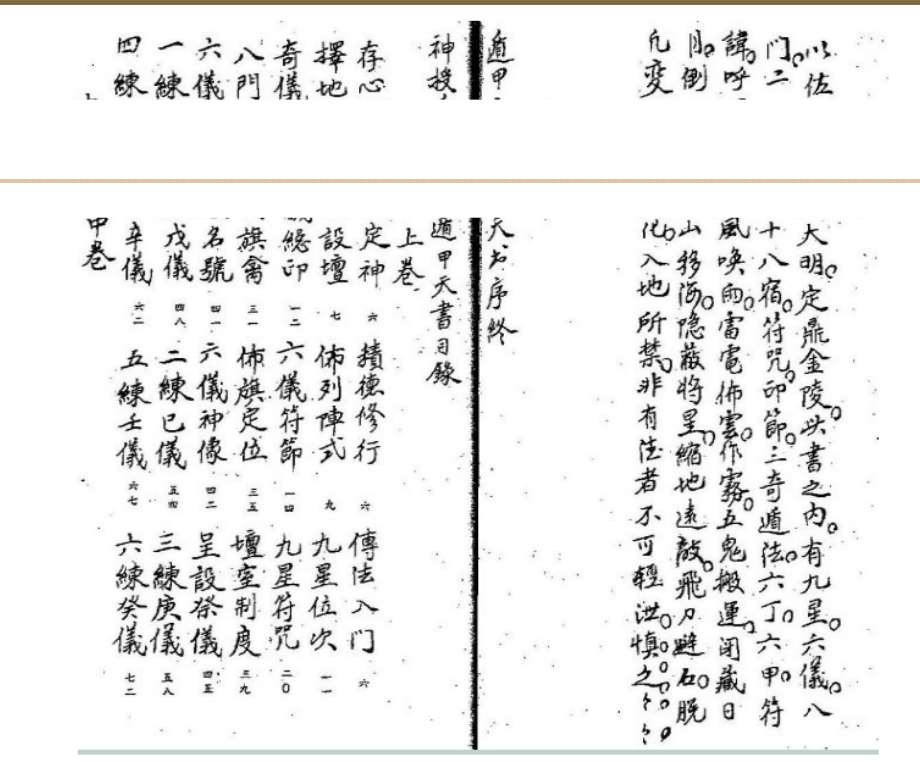 以佐
门二
諱呼
月倒
凡変
遁甲
神授
存心
擇地
奇儀
八門
六儀
一練
四練
大明。定鼎金陵。此書之内。有九星。六儀。八
十八宿。符咒。印節。三奇遁法。六丁。六甲。符
風喚雨。雷電佈雲。作霧。五鬼搬運。闭藏日
山移海。隐蔽将星。縮地遠敵。飛刀避石。脱
化。入地所禁。非有法者不可輕洩。慎之々々。
天书序終
遁甲天書目錄
上卷
定神 六 積德修行 六 傳法入门 六
設壇 七 佈列陣式 九 九星位次 一一
總印 一二 六儀符節 一四 九星符咒 二〇
旗禽 三一 佈旗定位 三五 壇室制度 三九
名號 四一 六儀神像 四二 呈設祭儀 四五
戊儀 四八 二練已儀 五四 三練庚儀 五八
辛儀 六二 五練壬儀 六七 六練癸儀 七二
甲卷